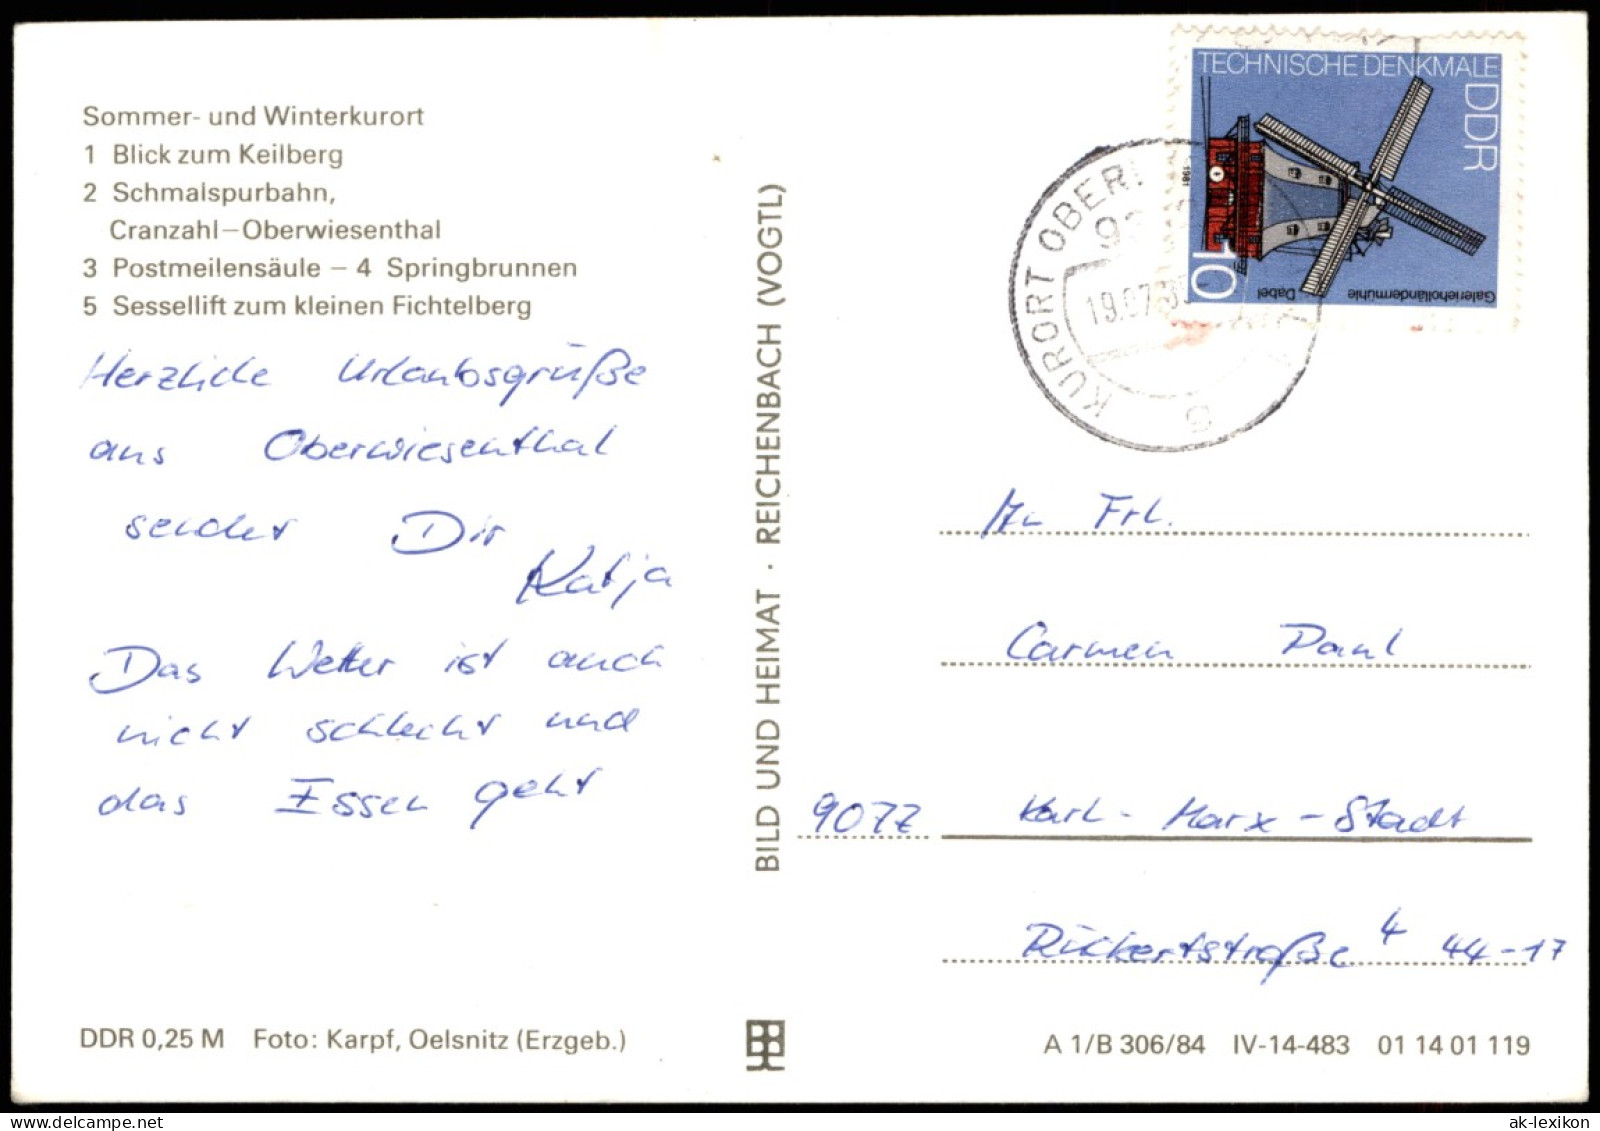 Sommer- und Winterkurort
1 Blick zum Keilberg
2 Schmalspurbahn,
Cranzahl–Oberwiesenthal
3 Postmeilensäule – 4 Springbrunnen
5 Sessellift zum kleinen Fichtelberg
Herzliche Urlaubsgrüße
aus Oberwiesenthal
sendet Dir
Katja
Das Wetter ist auch
nicht schlecht und
das Essen geht
DDR 0,25 M Foto: Karpf, Oelsnitz (Erzgeb.)
BILD UND HEIMAT · REICHENBACH (VOGTL)
TECHNISCHE DENKMALE
DDR
1981
10
Galerieholländermühle
Dabel
KURORT
19.07
An Frl.
Carmen Paul
9077 Karl-Marx-Stadt
Rückertstraße 4 44-17
A 1/B 306/84 IV-14-483 01 14 01 119
ak-lexikon